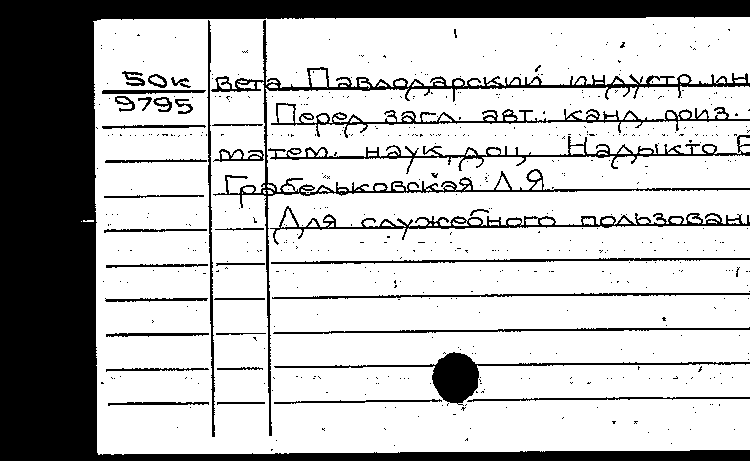 50к вета. Павлодарский индустр. ин
9795 Перед загл. авт.: канд. физ.
матем. наук, доц. Надыкто Б
Грабельковская Л.Я.
Для служебного пользован